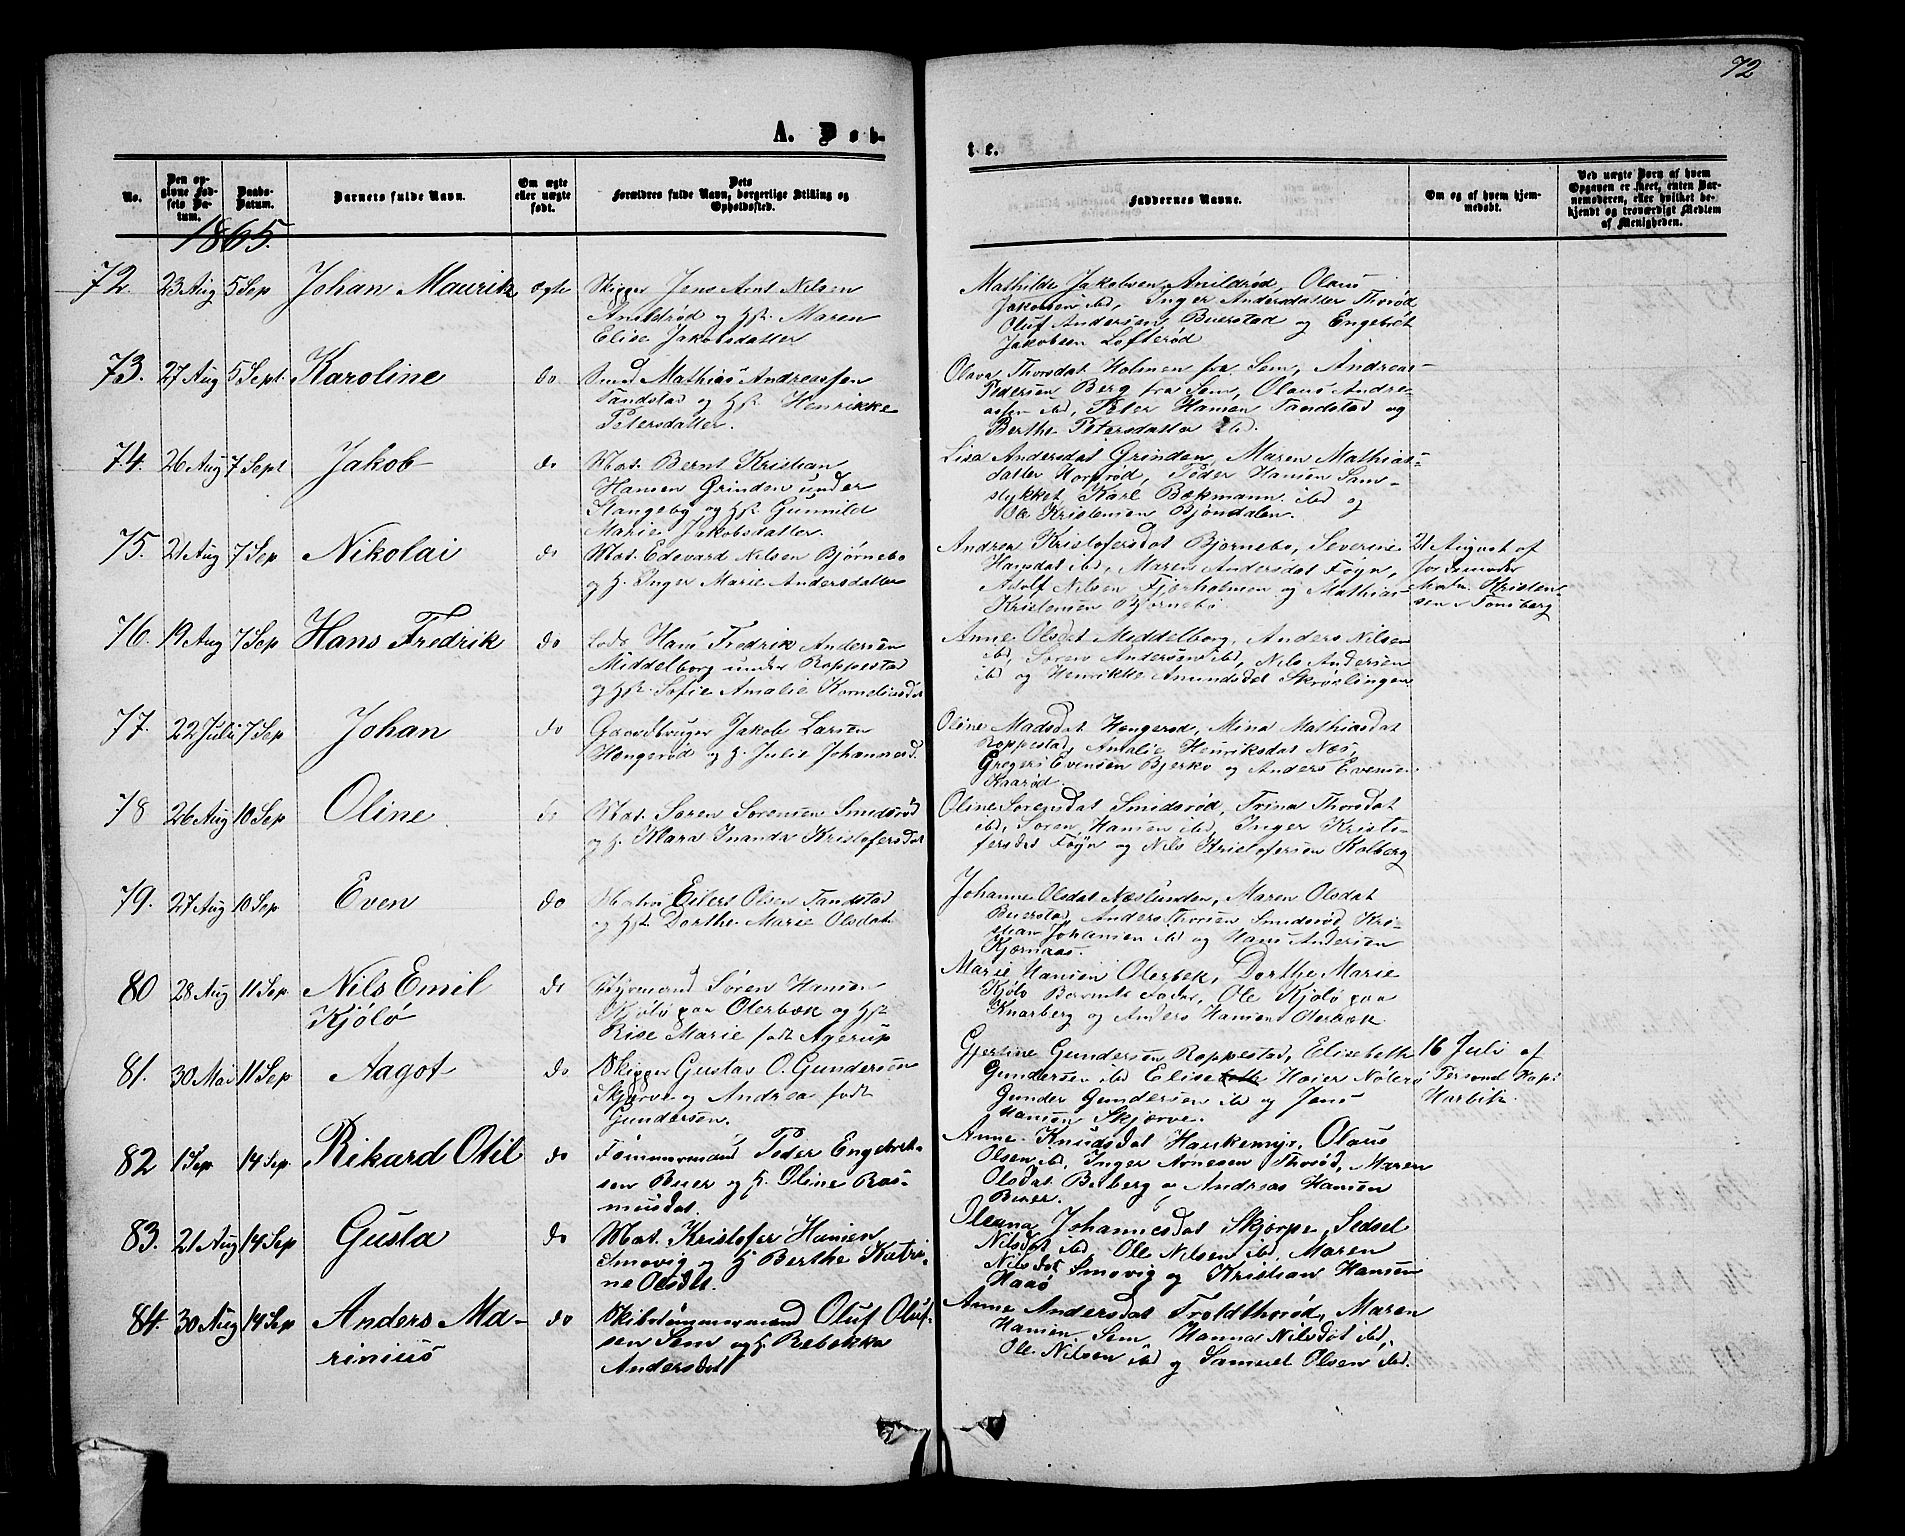 72
A. Døb-
te.
No.
Den op-
givne Fød-
sels Da-
tum.
Daabs-
Datum.
Barnets fulde Navn.
Om ægte
eller uægte
født.
Dets
Forældres fulde Navn, borgerlige Stilling og
Opholdssted.
Faddernes Navne.
Om og af hvem hjem-
medøbt.
Ved uægte Børn af hvem
Opgaven er skeet, enten Bar-
nemoderen, eller hvilket be-
kjendt og troværdigt Medlem
af Menigheden.
1865.
72. 23 Aug 5 Sep Johan Maurik ægte Skipper Jens Arnt Nilsen
Arildrød og Hst. Maren
Elise Jakobsdatter
Mathilde Jakobsen Arildrød, Olaus
Jakobsen ibd, Inger Andersdatter Thorød
Oluf Andersen Buerstad og Engebret
Jakobsen Lofterød
73. 27 Aug 5 Sept. Karoline do. Smed Mathias Andreassen
Tandstad og Hst. Henrikke
Petersdatter.
Olava Thorsdat Holmen fra Sem, Andreas
Pedersen Berg fra Sem, Olaus Andre-
assen ibd, Peter Hansen Tandstad og
Berthe Petersdatter ibd.
74. 26 Aug 7 Sept Jakob do Mat. Bernt Kristian
Hansen Grinden under
Stangeby og Hst. Gunnild
Marie Jakobsdatter.
Lisa Andersdat Grinden, Maren Mathias-
datter Horprød, Peder Hansen Sam-
stykket Karl Bækmann ibd og
Kristensen Bjøndalen.
75. 21 Aug 7 Sep Nikolai do Mat. Edevard Nilsen Bjørnebo
og H. Inger Marie Andersdatter
Andrea Kristofersdat Bjørnebo, Severine
Hansdat ibd, Maren Andersdat Føyn,
Adolf Nilsen Fjørholmen og Mathias
Kristensen Bjørnebo
21 August af
Jordemoder
Mahn. Kristen-
sen Tønsberg
76. 19 Aug 7 Sep Hans Fredrik do Lods Hans Fredrik Andersen
Middelborg under Roppestad
og Hst. Sofie Amalie Korneliusdat
Anne Olsdat Middelborg, Anders Nilsen
ibd, Søren Andersen ibd, Nils Andersen
ibd og Henrikke Amundsdat Skrøslingen
77. 22 Juli 7 Sep Johan do Gaardbruger Jakob Larsen
Hengerød og H. Julie Johannesd.
Oline Madsdat Hengerød, Mina Mathiasdat
Roppestad, Amalie Henriksdat Næs,
Gregers Evensen Bjerkø og Anders Evensen
Kaarød.
78 26 Aug 10 Sep Oline do Mat. Søren Sørensen Smidsrød
og H. Klara Inanda Kristofersdat
Oline Sørensdat Smidsrød, Trina Thorsdat
ibd, Søren Hansen ibd, Inger Kristo-
fersdat Føyn og Nils Kristofersen Kolberg
79. 27 Aug 10 Sep Even do Matros Eilert Olsen Tandstad
og Hst. Dorthe Marie Olsdat
Johanne Olsdat Næslunden, Maren Olsdat
Buerstad, Anders Thorsen Smidsrød, Kri-
stian Johansen ibd og Hans Andersen
Kjærnaas.
80 28 Aug 11 Sep. Nils Emil
Kjølø
do Styrmand Søren Hansen
Kjølø paa Olerbæk og Hst
Rise Marie født Agerup
Marie Hansen Olerbæk, Dorthe Marie
Kjølø Barnets Fader, Ole Kjølø paa
Knarberg og Anders Hansen Olerbæk
81. 30 Mai 11 Sep Aagot do Skipper Gustav O. Gundersen
Skjærve og Andrea født
Gundersen.
Gjertine Gundersen Roppestad, Elisebeth
Gundersen ibd Elise Høier Nøterø
Gunder Gundersen ibd og Jens
Hansen Skjærve.
16 Juli af
Personel Kap.
Harbitz.
82 1 Sep 14 Sep. Rikard Otil do Tømmermand Peder Engebret-
sen Buer og H. Oline Ras-
musdat.
Anne Knudsdat Haukemyr, Olaus
Olsen ibd, Inger Arnesen Thorød, Maren
Olsdat Berberg og Andreas Hansen
Buer.
83. 21 Aug 14 Sep Gusta do Mat. Kristofer Hansen
Smovig og H Berthe Katri-
ne Olsdat.
Oleana Johannesdat Skjerpe, Sidsel
Nilsdat ibd, Ole Nilsen ibd, Maren
Nilsdat Smovig og Kristian Hansen
Haaø
84. 30 Aug 14 Sep Anders Ma-
rinius
do Skibstømmermand Oluf Oluf-
sen Sem og H. Rebekka
Andersdat
Anne Andersdat Troldthorød, Maren
Hansen Sem, Hanna Nilsdat ibd,
Ole Nilsen ibd og Samuel Olsen ibd.